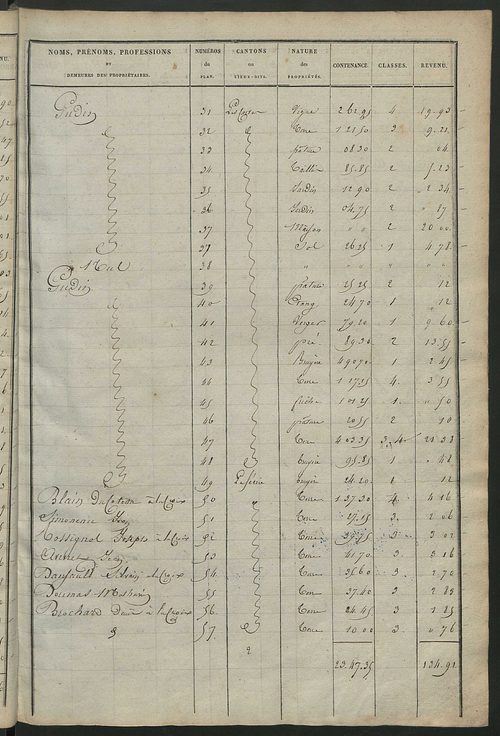 NOMS, PRÉNOMS, PROFESSIONS ET DEMEURES DES PROPRIÉTAIRES. NUMÉROS du PLAN. CANTONS ou LIEUX-DITS. NATURE des PROPRIÉTÉS. CONTENANCE. CLASSES. REVENU.
Gudin 31 Vigne 2 62 95 4 19 93
32 Terre 1 21 50 3 9 21
33 pature 08 30 2 04
34 85.85 2
35 Jardin 12 90 2 2 34
36 Jardin 04.75 2 17
37 Maison " " 2 20 00
37 Sol 26 25 1 4 78
Nul 38 " " " "
Gudin 39 pature 25 25 2 12
40 Etang 24.70 1 12
41 Verger 79.20 1 9 60
42 pré 89.30 2 13.55
43 Bruyère 49070 1 2 45
44 Terre 1 17.35 4. 3 55
45 friche 1 01 25 1 " 50
46 pature 20 55 2 10
47 Terre 4 03.35 3. 4 21 38
48 bruyère 95.85 1 " 48
49 bruyère 24.20 1 12
Blain à la Croix 50 Terre 1 37.30 4. 4 16
Simonenne 51 Terre 3. 2 06
Rossignol Joseph à la Croix 52 Terre 39.75 3 3 02
53 Terre 41.70 3. 3 16
à la Croix 54. Terre 35.60 3. 2.70
55 Terre 37.40 3. 2 83
Brochard à la Croix 56. Terre 24.45 3 1 85
57. Terre 10 00 3. 0 76
23.47.35 134.91